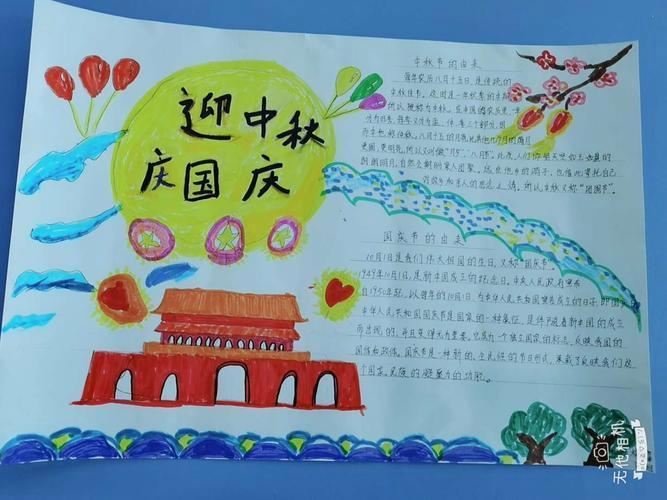 迎中秋
庆国庆
中秋节的由来
每年农历八月十五日,是传统的
中秋佳节。这时是一年秋季的中期,
所以被称为中秋。在中国的农历里,
分为四季,每季又分为孟、仲、季三个部分,因
而中秋也称仲秋。八月十五的月亮比其他几个月的满月
更圆,更明亮,所以又叫做"月夕","八月节"。此夜,人们仰望天空如玉如盘的
朗朗明月,自然会期盼家人团聚。远在他乡的游子,也借此寄托自己
对故乡和亲人的思念之情。所以,中秋又称"团圆节"。
国庆节的由来
10月1日是我们伟大祖国的生日,又称"国庆节"。
1949年10月1日,是新中国成立的纪念日。中央人民政府宣布
自1950年起,以每年的10月1日,为中华人民共和国宣告成立的日子,即国庆
中华人民共和国国庆节是国家的一种象征,是伴随着新中国的成立
而出现的,并且变得尤为重要,也成为一个独立国家的标志,反映我国的
国体和政体。国庆节是一种新的、全民性的节日形式,承载了反映我们这
个国家、民族的凝聚力的功能。
无他相机